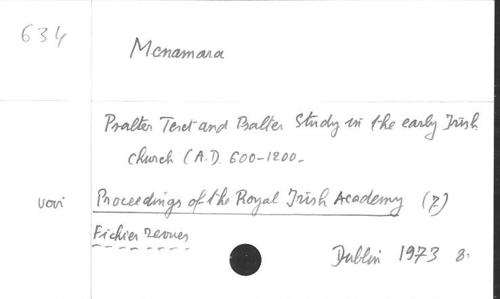 634
Mcnamara
Psalter Text and Psalter Study in the early Irish
church (A.D. 600-1200-
voir Proceedings of the Royal Irish Academy (7)
Fichier revues
Dublin 1973 8.